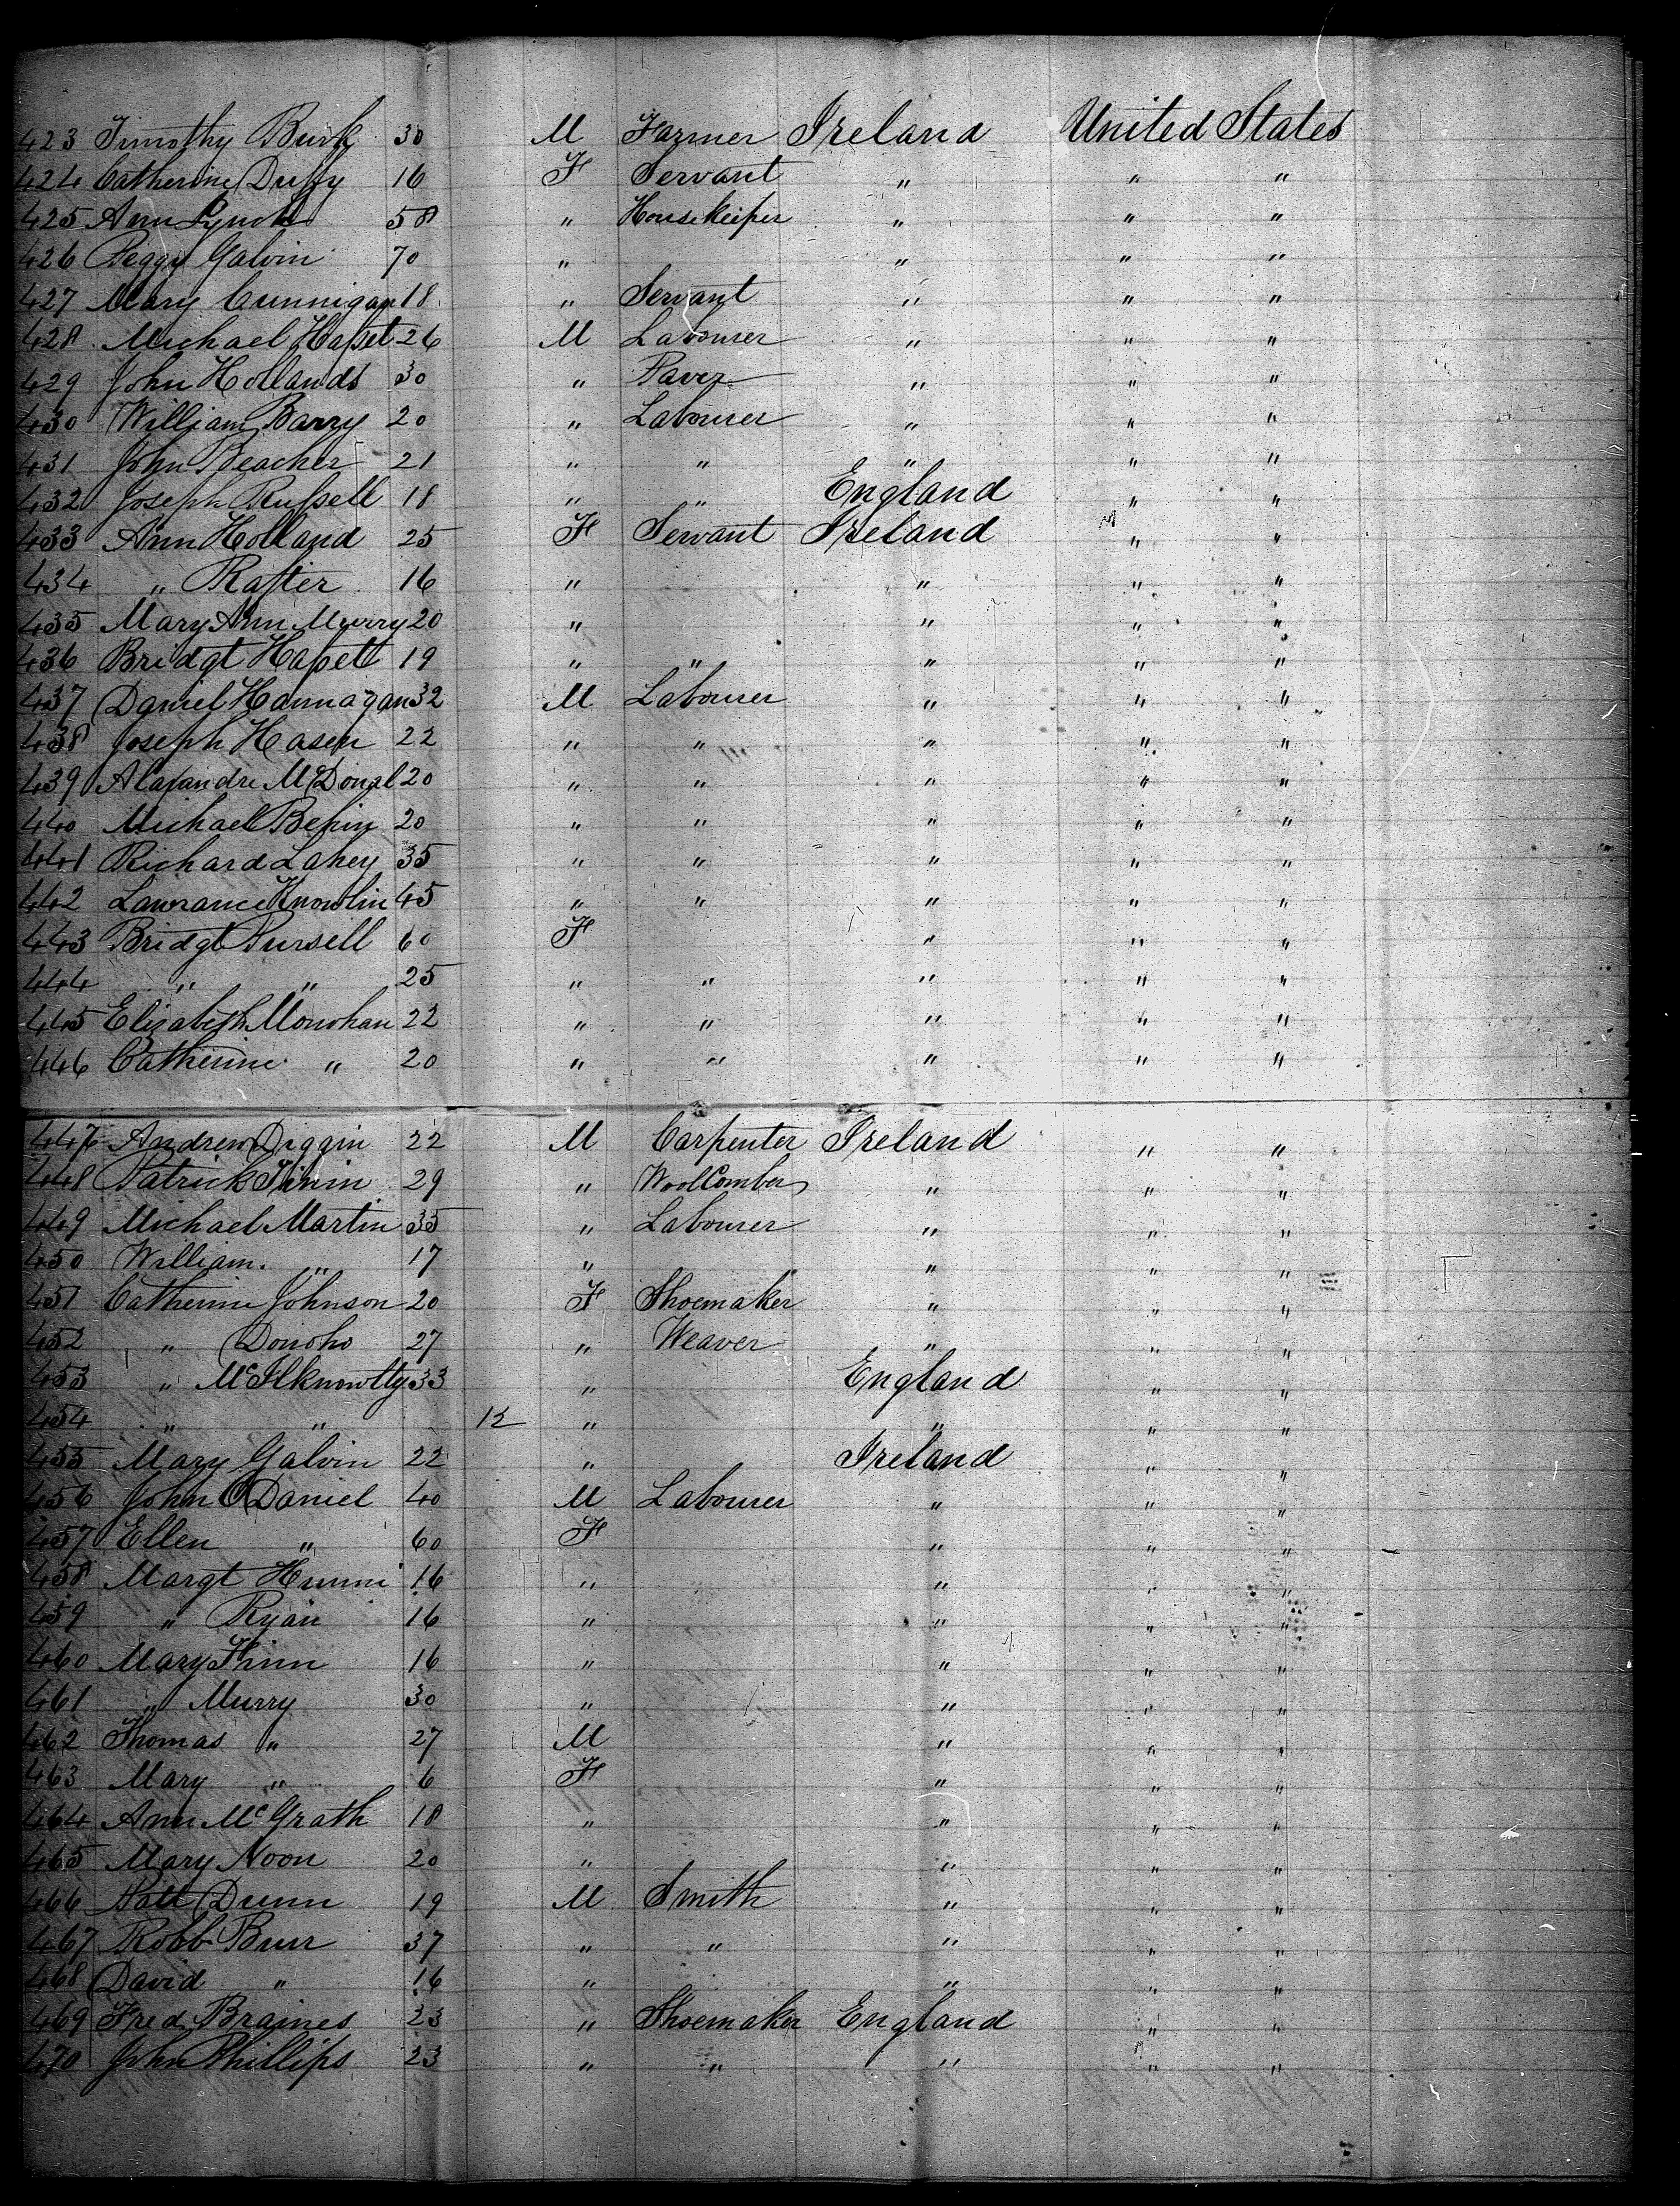 423 Timothy Burk 30 M Farmer Ireland United States
424 Catherine Duffy 16 F Servant " " "
425 Ann Lynch 58 " Housekeiper " " "
426 Peggy Galvin 70 " " " "
427 Mary Cunnigan 18 " Servant " " "
428 Michael Haſset 26 M Labourer " " "
429 John Hollands 30 " Paver " " "
430 William Barry 20 " Labourer " " "
431 John Beacher 21 " " " " "
432 Joseph Ruſsell 18 " " England " "
433 Ann Holland 25 F Servant Ireland " "
434 " Rafter 16 " " " "
435 Mary Ann Murry 20 " " " "
436 Bridgt Haſsett 19 " " " " "
437 Daniel Hannagan 32 M Labourer " " "
438 Joseph Hasen 22 " " " " "
439 Alaxandre McDonal 20 " " " " "
440 Michael 20 " " " " "
441 Richard Lahey 35 " " " " "
442 Lawrance Knowlin 45 " " " " "
443 Bridgt Pursell 60 F " " "
444 " " 25 " " " " "
445 Elizabeth Monohan 22 " " " " "
446 Catherine " 20 " " " " "
447 Andrew Diggin 22 M Carpenter Ireland " "
448 Patrick 29 " WoolComber " " "
449 Michael Martin 35 " Labourer " " "
450 William " 17 " " " "
451 Catherine Johnson 20 F Shoemaker " " "
452 " Donoho 27 " Weaver " " "
453 " McIlknowlty 33 " England " "
454 " " 12 " " " "
455 Mary Galvin 22 " Ireland " "
456 John ODaniel 40 M Labourer " " "
457 Ellen " 60 F " " "
458 Margt 16 " " " "
459 " Ryan 16 " " " "
460 Mary Finn 16 " " " "
461 " Murry 30 " " " "
462 Thomas " 27 M " " "
463 Mary " 6 F " " "
464 Ann McGrath 18 " " " "
465 Mary Noon 20 " " " "
466 Patt Dunn 19 M Smith " " "
467 Robb Burr 37 " " " " "
468 David " 16 " " " "
469 Fred Braines 23 " Shoemaker England " "
470 John Phillips 23 " " " " "